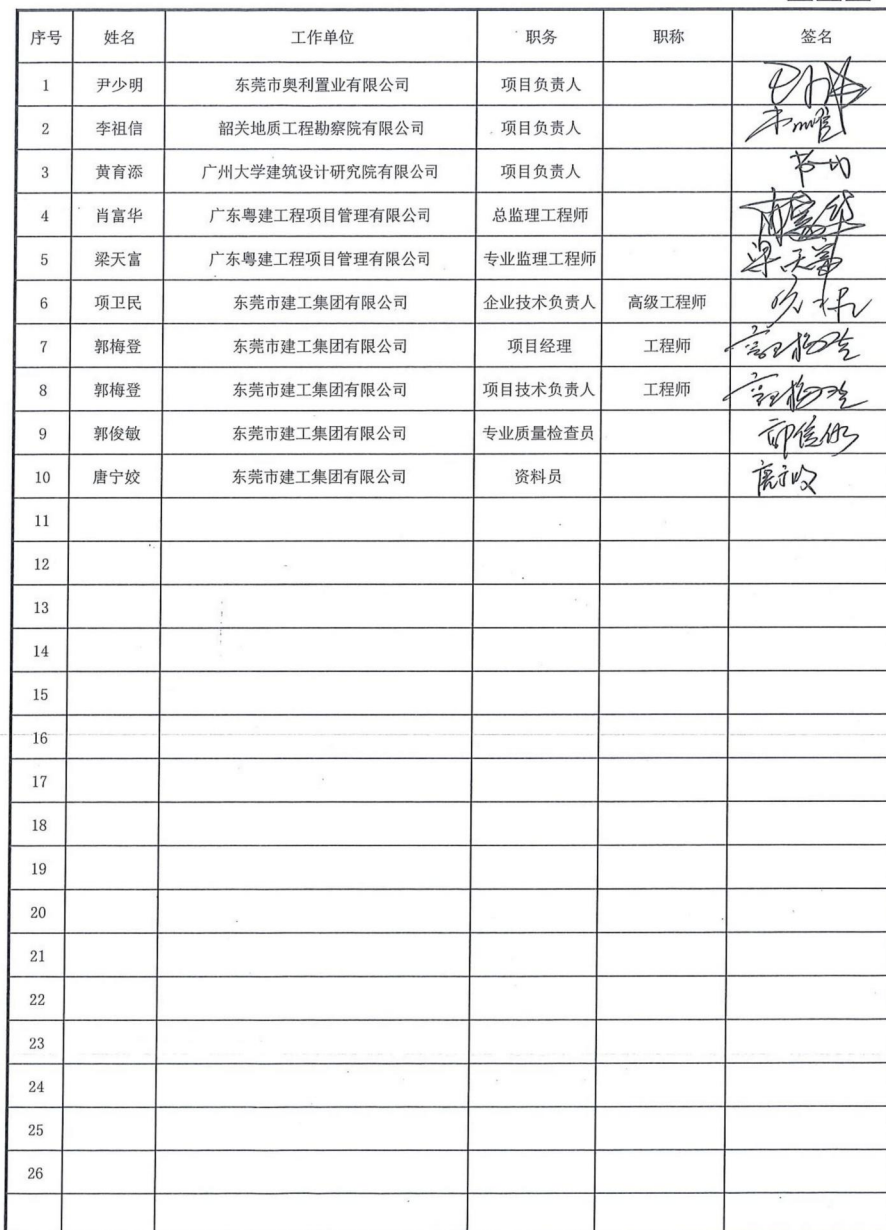 序号 姓名 工作单位 职务 职称 签名
1 尹少明 东莞市奥利置业有限公司 项目负责人
2 李祖信 韶关地质工程勘察院有限公司 项目负责人
3 黄育添 广州大学建筑设计研究院有限公司 项目负责人
4 肖富华 广东粤建工程项目管理有限公司 总监理工程师 肖富华
5 梁天富 广东粤建工程项目管理有限公司 专业监理工程师 梁天富
6 项卫民 东莞市建工集团有限公司 企业技术负责人 高级工程师
7 郭梅登 东莞市建工集团有限公司 项目经理 工程师 郭梅登
8 郭梅登 东莞市建工集团有限公司 项目技术负责人 工程师 郭梅登
9 郭俊敏 东莞市建工集团有限公司 专业质量检查员
10 唐宁姣 东莞市建工集团有限公司 资料员
11
12
13
14
15
16
17
18
19
20
21
22
23
24
25
26